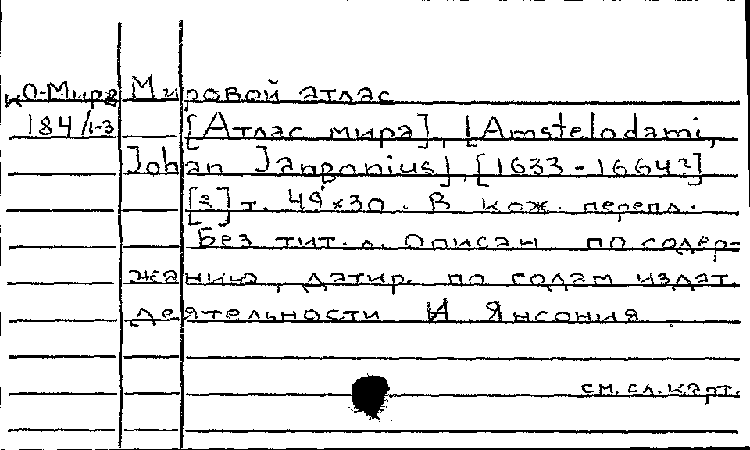 КО-Мира Мировой атлас
184/1-3 [Атлас мира]. [Amstelodami,
Johan Janponius], [1633-1664?]
[3] т. 49×30. В кож. перепл.
Без тит. л. Описан по содер-
жанию, датир. по годам издат.
деятельности И Янсония.
см. сл. карт.